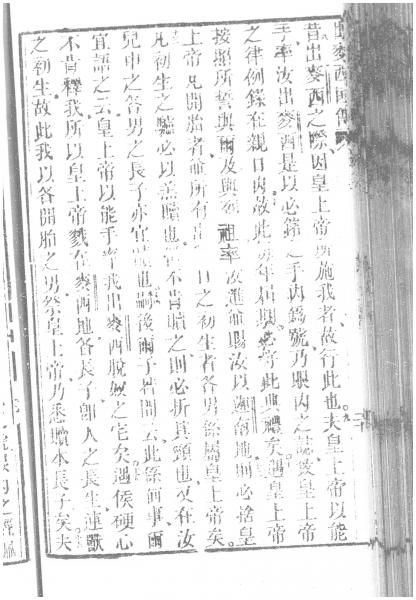 出麥西國傳
昔出麥西之際、因皇上帝所施我者、故行此也。夫皇上帝以能
手、率汝出麥西、是以必錄之手內爲號、乃眼內之誌、致皇上帝
之律例錄在親口內、故此每年屆期、必守此典禮矣。遇皇上帝
按照所誓與爾及與列祖、率汝進而賜汝以迦南地、則必捨皇
上帝凡開胎者、並所有 口之初生者、各男係屬皇上帝矣。
凡初生之驢、必以羔贖也、若不肯贖之、則必折其頸也、又在汝
兒中之各男之長子、亦宜贖也。嗣後爾子若問云、此係何事、爾
宜語之云、皇上帝以能手率我出麥西、脫奴之宅矣。遇侯硬心
不肯釋我、所以皇上帝戮在麥西地各長子、卽人之長生、連獸
之初生、故此我以各開胎之男、祭皇上帝、乃悉贖本長子矣。夫